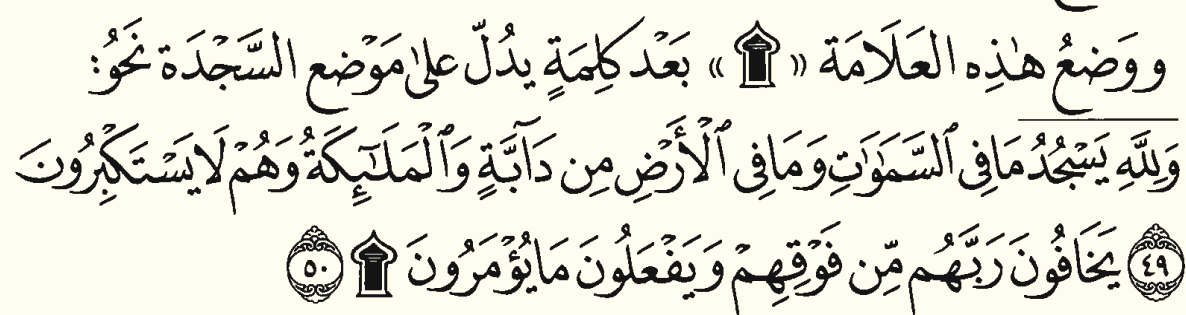 ووَضعُ هٰذِه العَلَامَة «۩» بَعْد كلِمَةٍ يدُلّ على مَوْضع السَّجْدَة نَحْوُ:
وَلِلَّهِ يَسْجُدُ مَا فِى ٱلسَّمَٰوَٰتِ وَمَا فِى ٱلْأَرْضِ مِن دَآبَّةٍ وَٱلْمَلَٰٓئِكَةُ وَهُمْ لَا يَسْتَكْبِرُونَ
٤٩ يَخَافُونَ رَبَّهُم مِّن فَوْقِهِمْ وَيَفْعَلُونَ مَا يُؤْمَرُونَ ۩ ٥٠